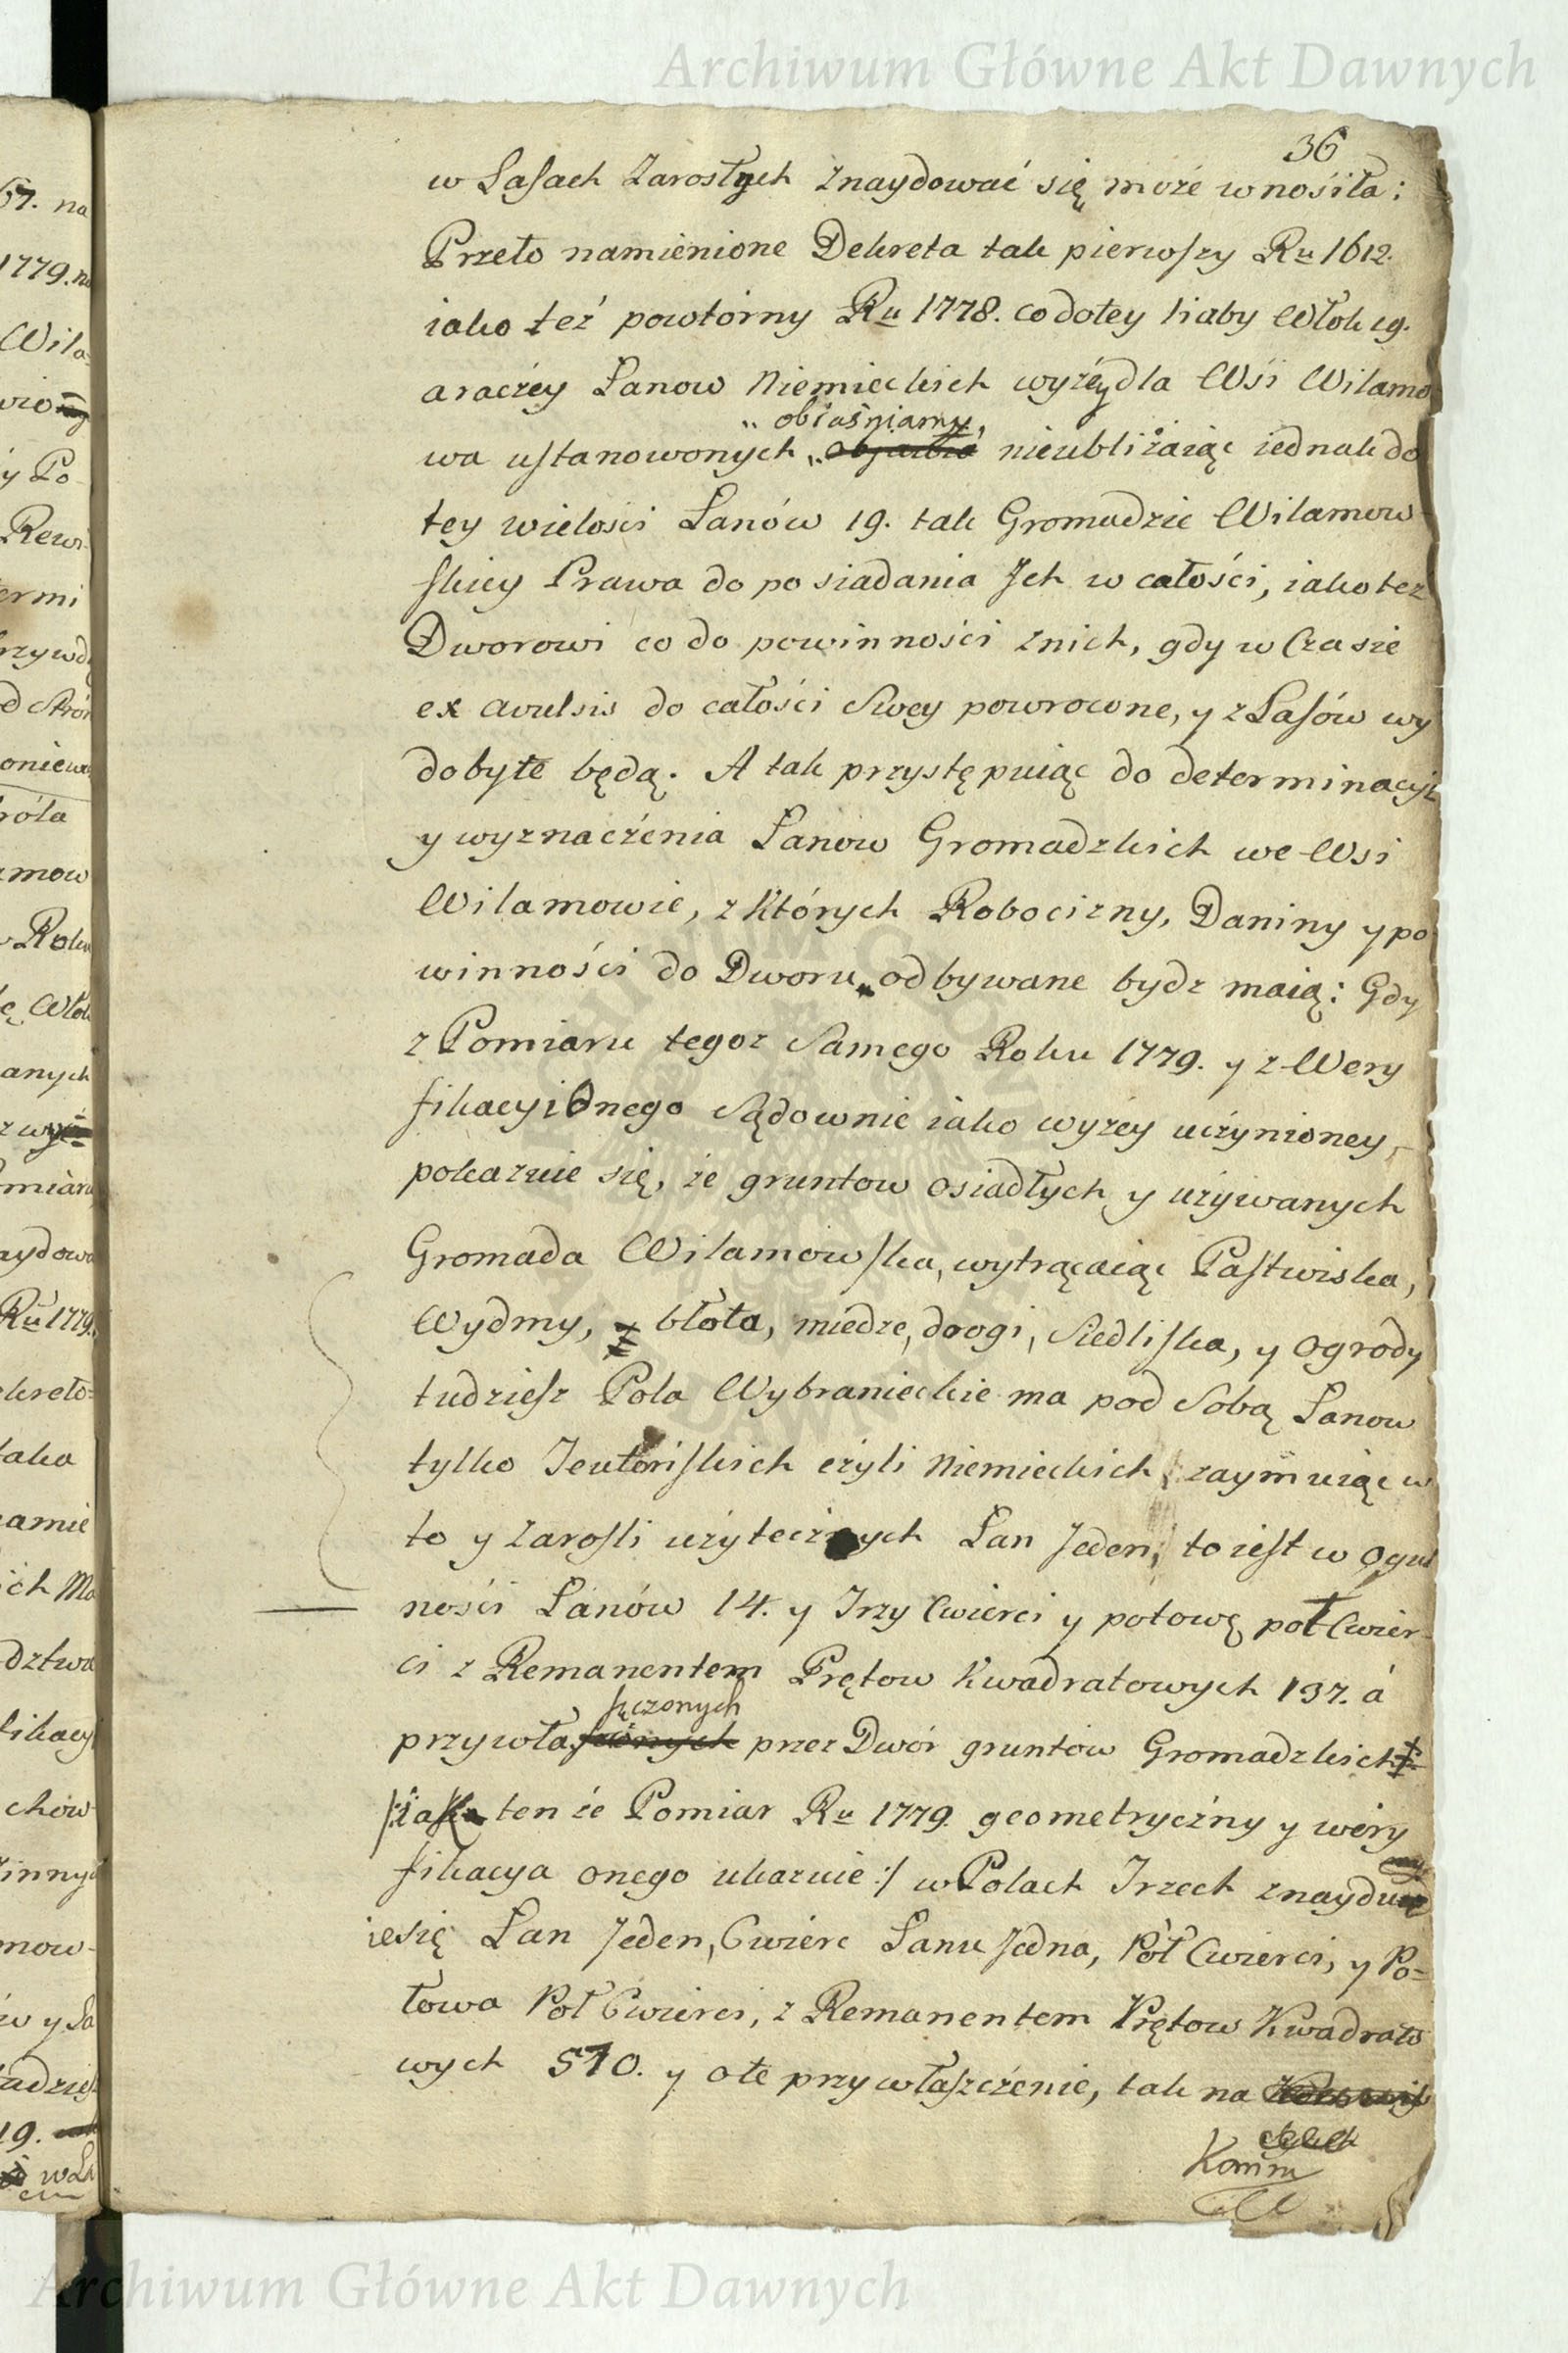 Archiwum Główne Akt Dawnych
36
w Lasach Zarosłych znaydować się może wnosiła:
Przeto namienione Dekreta tak pierwszy Ru 1612.
iako też powtórny Ru 1778. co do tey liczby Włok 19.
araczey Łanow Niemieckich wyżey dla Wsi Wilamo
„ obiaśniamy,
wa ustanowonych „ nieubliżaiąc iednak do
tey wielosci Łanów 19. tak Gromadzie Wilamow
skiey Prawa do posiadania Jch w całości, iako też
Dworowi co do powinności znich, gdy w Czasie
ex avulsis do całości Swey powrocone, y z Lasów wy
dobyte będą. A tak przystępuiąc do determinacyi
y wyznaczenia Łanow Gromadzkich we Wsi
Wilamowie, z których Robocizny, Daniny y po
winności do Dworu odbywane bydz maią: Gdy
z Pomiaru tegoz Samego Roku 1779. y z Wery
fikacyi Onego Sądownie iako wyżey uczynioney,
pokazuie się, że gruntow osiadłych y używanych
Gromada Wilamowska, wytrącaiąc Pastwiska,
Wydmy, błota, miedze, drogi, Siedliska, y Ogrody
tudziesz Pola Wybranieckie ma pod Sobą Łanow
tylko Teutońskich czyli Niemieckich zaymuiąc w
to y Zarosli użytecznych Łan Jeden, to iest w Ogul
ności Łanów 14. y Trzy Cwierci y połowę poł Cwier-
ci z Remanentem Prętow Kwadratowych 137. á
szczonych
przywła przez Dwór gruntow Gromadzkich
/:iako tenże Pomiar Ru 1779 geometryczny y wery
fikacya onego ukazuie:/ w Polach Trzech znaydu
iesię Łan Jeden, Cwierc Łanu Jedna, Poł Cwierci, y Po=
łowa Poł Cwierci, z Remanentem Prętow Kwadrato
wych 510. y ote przywłaszczenie, tak na
Komm
Archiwum Główne Akt Dawnych